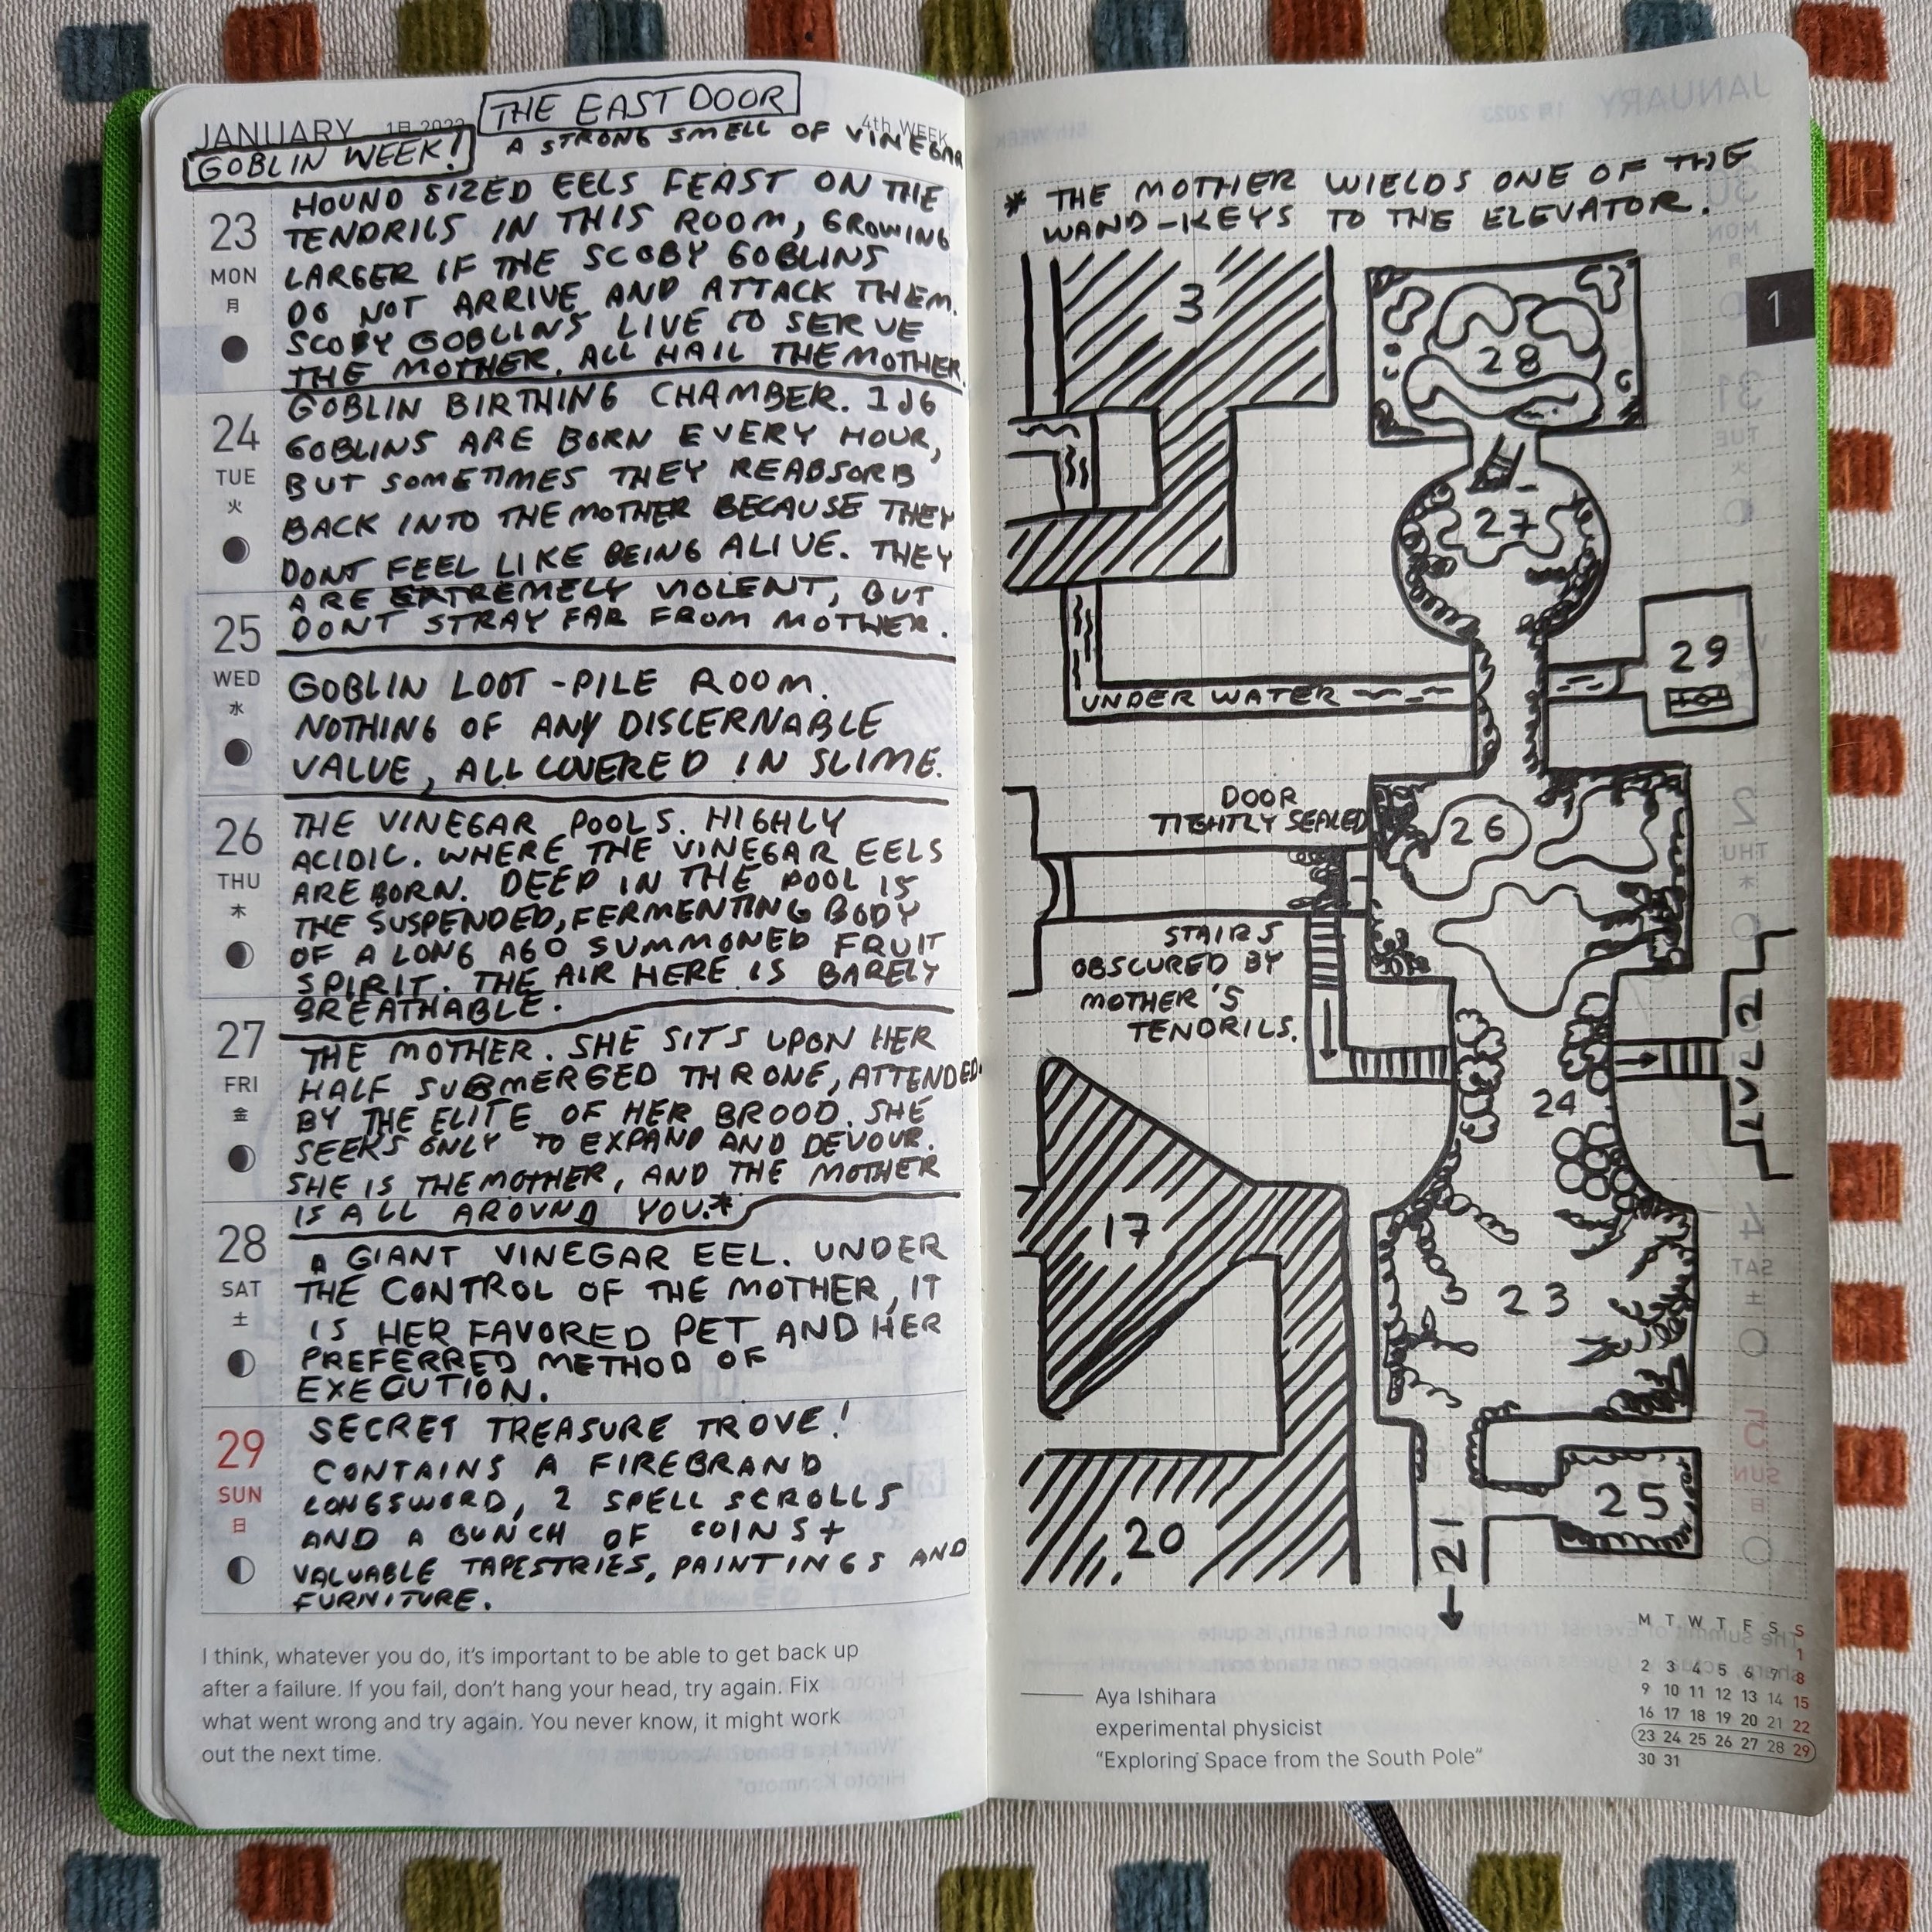 JANUARY 1月 2023
THE EAST DOOR
4th WEEK
GOBLIN WEEK!
A STRONG SMELL OF VINEGAR
23
MON
月
HOUND SIZED EELS FEAST ON THE
TENDRILS IN THIS ROOM, GROWING
LARGER IF THE SCOBY GOBLINS
DO NOT ARRIVE AND ATTACK THEM.
SCOBY GOBLINS LIVE TO SERVE
THE MOTHER. ALL HAIL THE MOTHER.
24
TUE
火
GOBLIN BIRTHING CHAMBER. 1d6
GOBLINS ARE BORN EVERY HOUR,
BUT SOMETIMES THEY REABSORB
BACK INTO THE MOTHER BECAUSE THEY
DONT FEEL LIKE BEING ALIVE. THEY
ARE EXTREMELY VIOLENT, BUT
DONT STRAY FAR FROM MOTHER.
25
WED
水
GOBLIN LOOT-PILE ROOM.
NOTHING OF ANY DISCERNABLE
VALUE, ALL COVERED IN SLIME.
26
THU
木
THE VINEGAR POOLS. HIGHLY
ACIDIC. WHERE THE VINEGAR EELS
ARE BORN. DEEP IN THE POOL IS
THE SUSPENDED, FERMENTING BODY
OF A LONG AGO SUMMONED FRUIT
SPIRIT. THE AIR HERE IS BARELY
BREATHABLE.
27
FRI
金
THE MOTHER. SHE SITS UPON HER
HALF SUBMERGED THRONE, ATTENDED
BY THE ELITE OF HER BROOD. SHE
SEEKS ONLY TO EXPAND AND DEVOUR.
SHE IS THE MOTHER, AND THE MOTHER
IS ALL AROUND YOU.*
28
SAT
土
A GIANT VINEGAR EEL. UNDER
THE CONTROL OF THE MOTHER, IT
IS HER FAVORED PET AND HER
PREFERRED METHOD OF
EXECUTION.
29
SUN
日
SECRET TREASURE TROVE!
CONTAINS A FIREBRAND
LONGSWORD, 2 SPELL SCROLLS
AND A BUNCH OF COINS +
VALUABLE TAPESTRIES, PAINTINGS AND
FURNITURE.
I think, whatever you do, it's important to be able to get back up
after a failure. If you fail, don't hang your head, try again. Fix
what went wrong and try again. You never know, it might work
out the next time.
* THE MOTHER WIELDS ONE OF THE
WAND-KEYS TO THE ELEVATOR.
1
3
28
27
29
UNDER WATER
DOOR
TIGHTLY SEALED
26
STAIRS
OBSCURED BY
MOTHER'S
TENDRILS.
LVL 2
24
17
23
25
20
21
Aya Ishihara
experimental physicist
"Exploring Space from the South Pole"
M T W T F S S
1
2 3 4 5 6 7 8
9 10 11 12 13 14 15
16 17 18 19 20 21 22
23 24 25 26 27 28 29
30 31